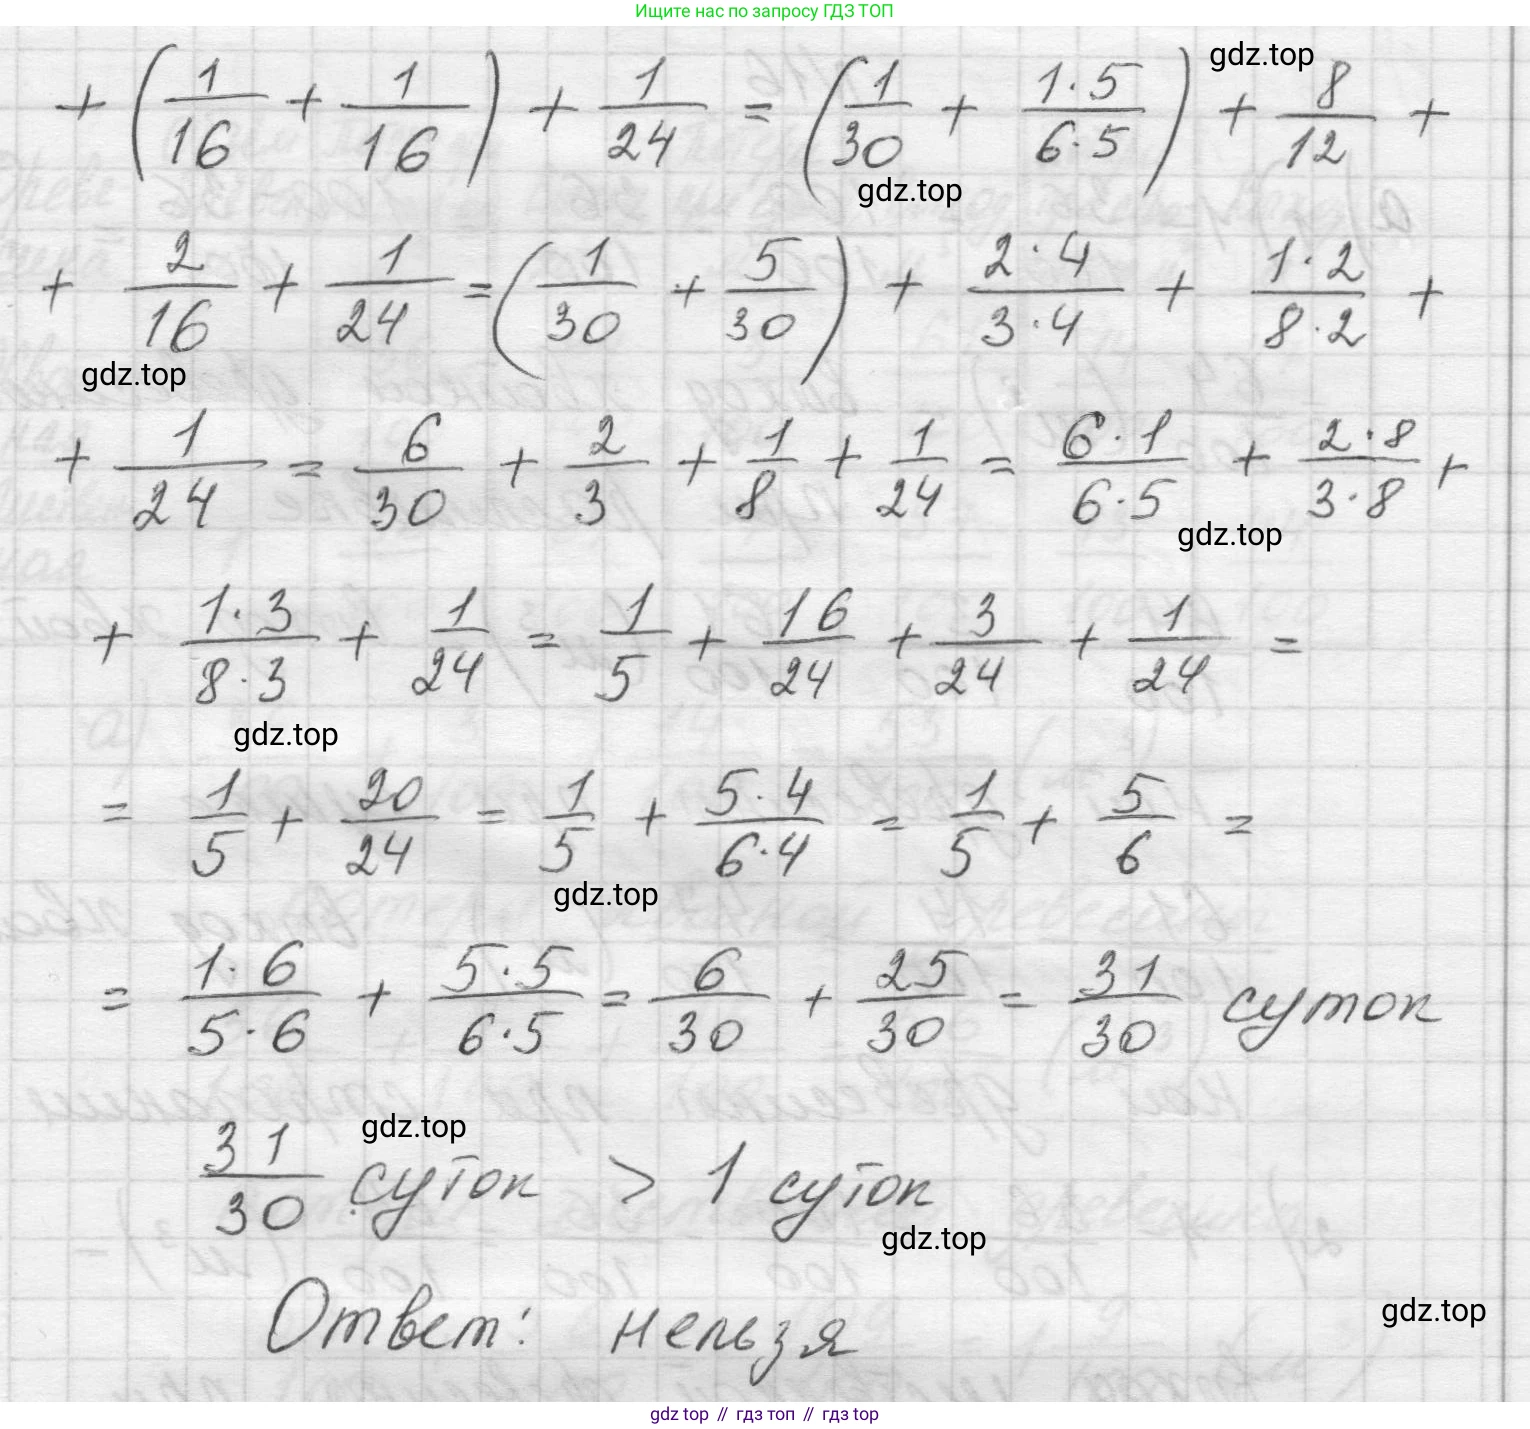 Ищите нас по запросу ГДЗ ТОП
gdz.top
+ (1/16 + 1/16) + 1/24 = (1/30 + 1·5/6·5) + 8/12 +
gdz.top
+ 2/16 + 1/24 = (1/30 + 5/30) + 2·4/3·4 + 1·2/8·2 +
gdz.top
+ 1/24 = 6/30 + 2/3 + 1/8 + 1/24 = 6·1/6·5 + 2·8/3·8 +
gdz.top
+ 1·3/8·3 + 1/24 = 1/5 + 16/24 + 3/24 + 1/24 =
gdz.top
= 1/5 + 20/24 = 1/5 + 5·4/6·4 = 1/5 + 5/6 =
gdz.top
= 1·6/5·6 + 5·5/6·5 = 6/30 + 25/30 = 31/30 суток
gdz.top
31/30 суток > 1 суток
gdz.top
Ответ: нельзя
gdz.top
gdz top // гдз топ // гдз top